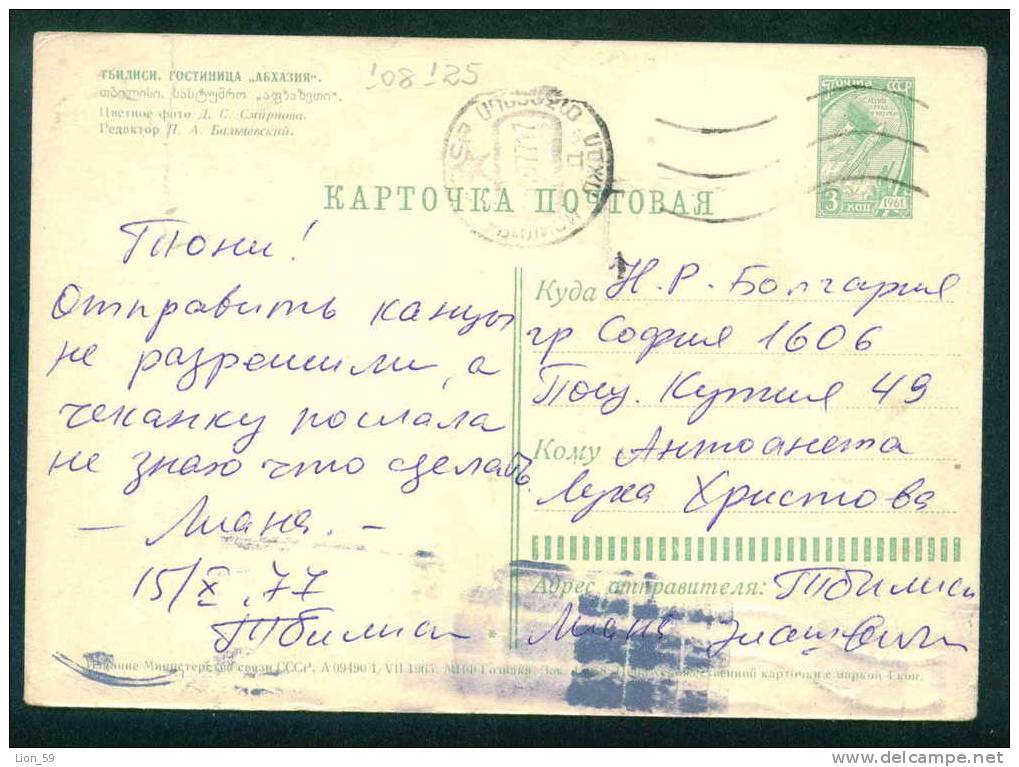 ТБИЛИСИ. ГОСТИНИЦА „АБХАЗИЯ“.
თბილისი. სასტუმრო „აფხაზეთი“.
Цветное фото Д. С. Смирнова.
Редактор П. А. Бальчевский.
108 125
ПОЧТА СССР
3 КОП
1961
КАРТОЧКА ПОЧТОВАЯ
Тюни!
Отправить канцы
не разрешили, а
чеканку послала
не знаю что сделать.
– Лиана. –
15/X. 77
Тбилиси
Куда Н.Р. Болгария
гр София 1606
Пощ. Кутия 49
Кому Антоанета
Луха Христова
Адрес отправителя: Тбилиси
Лиана
Издание Министерства связи СССР. А 09490 1/VII 1965. МПФ Гознака. Зак. Цена художественной карточки с маркой 4 коп.
Lion_59
www.delcampe.net